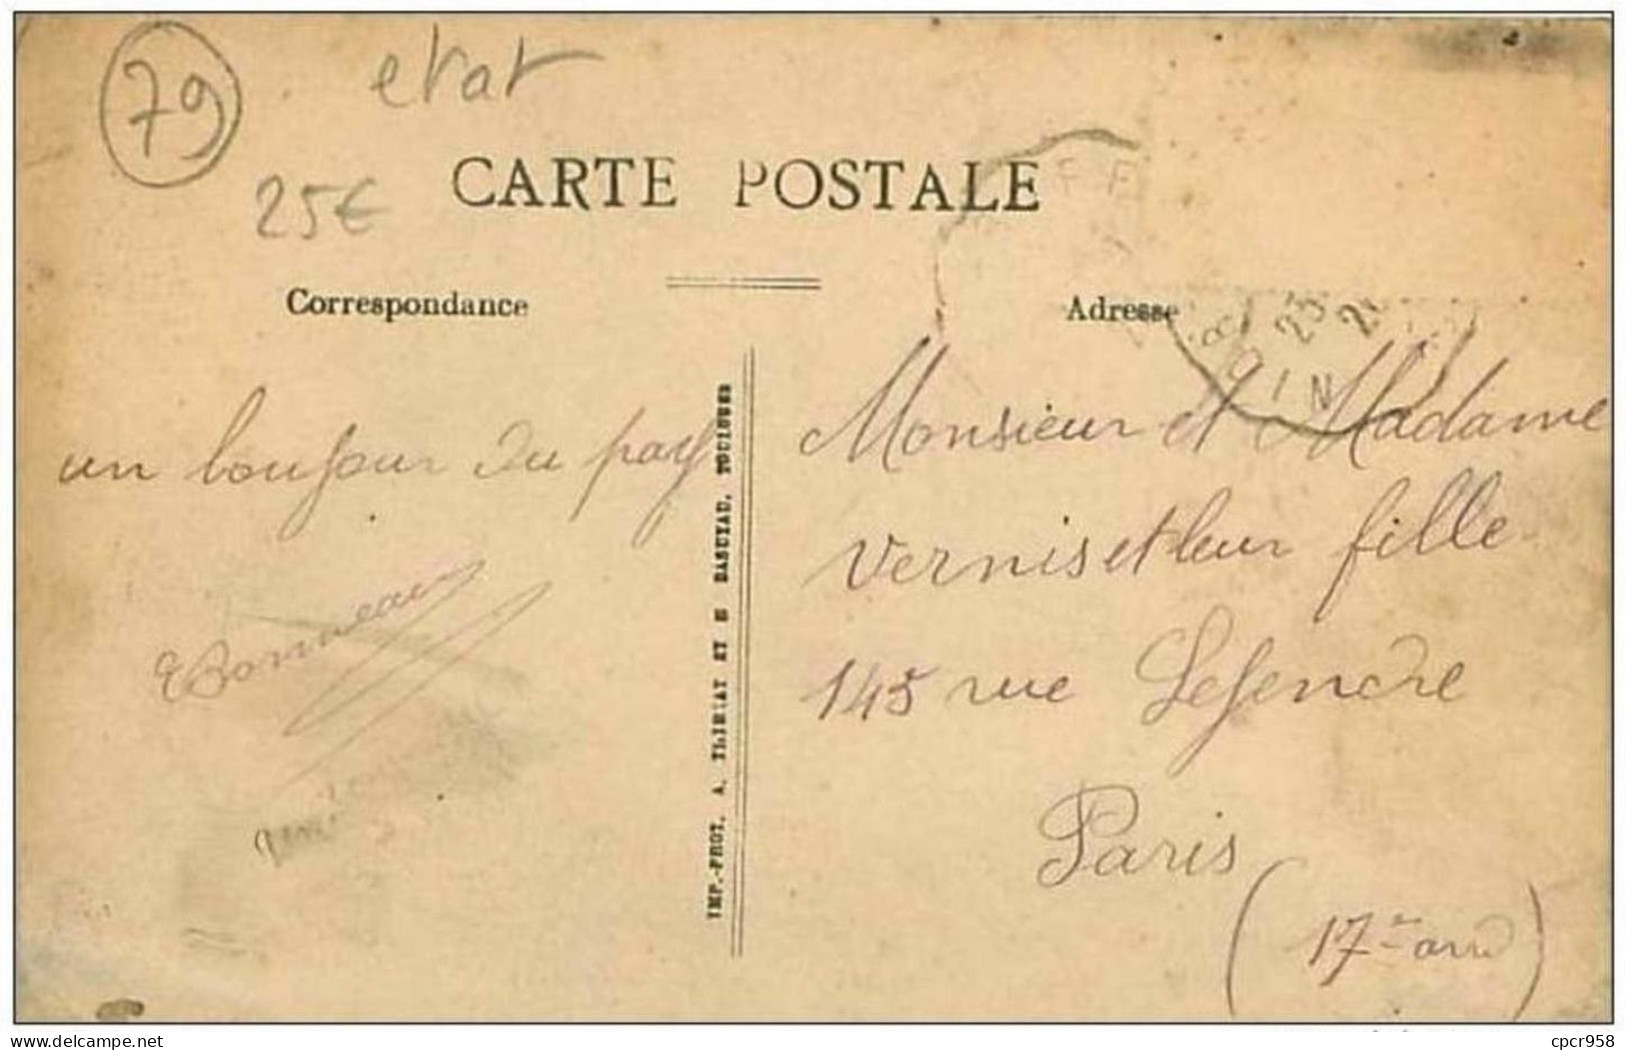 79
etat
25€
CARTE POSTALE
Correspondance
Adresse
un bonjour du pays
EBonneau
IMP.-PHOT. A. THIRIAT ET E BASUYAU, TOULOUSE
Monsieur et Madame
Vernis et leur fille
145 rue Legendre
Paris
(17e arrd)
cpcr958